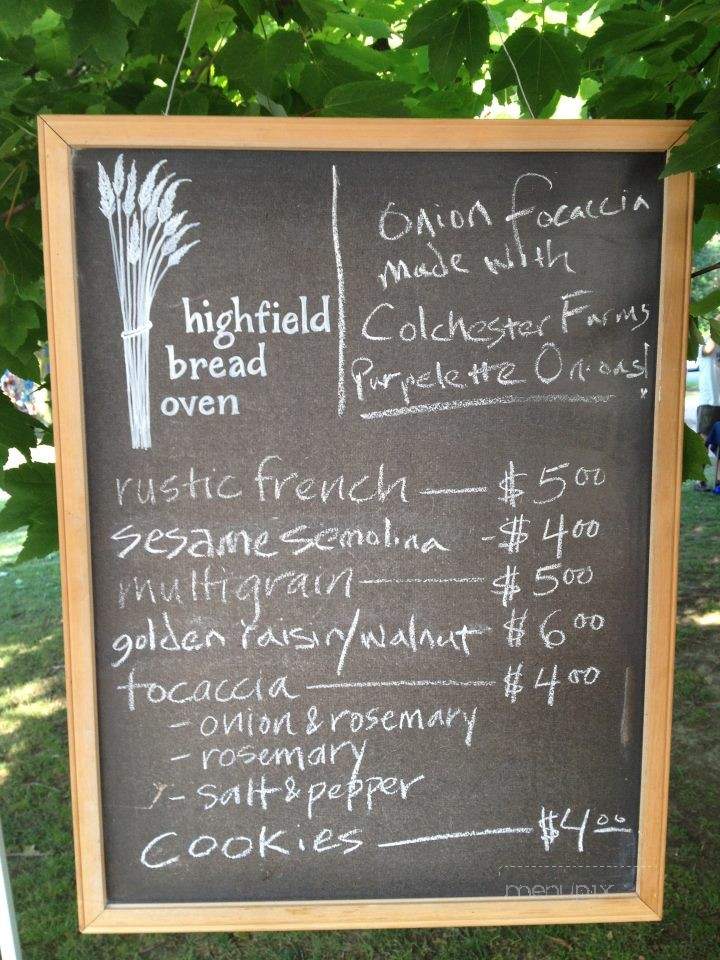 highfield
bread
oven
Onion focaccia
Made with
Colchester Farms
Purpelette Onions!
rustic french — $5.00
sesame semolina - $4.00
multigrain — $5.00
golden raisin/walnut $6.00
focaccia — $4.00
- onion & rosemary
- rosemary
- salt & pepper
COOKIES — $4.00
menupix